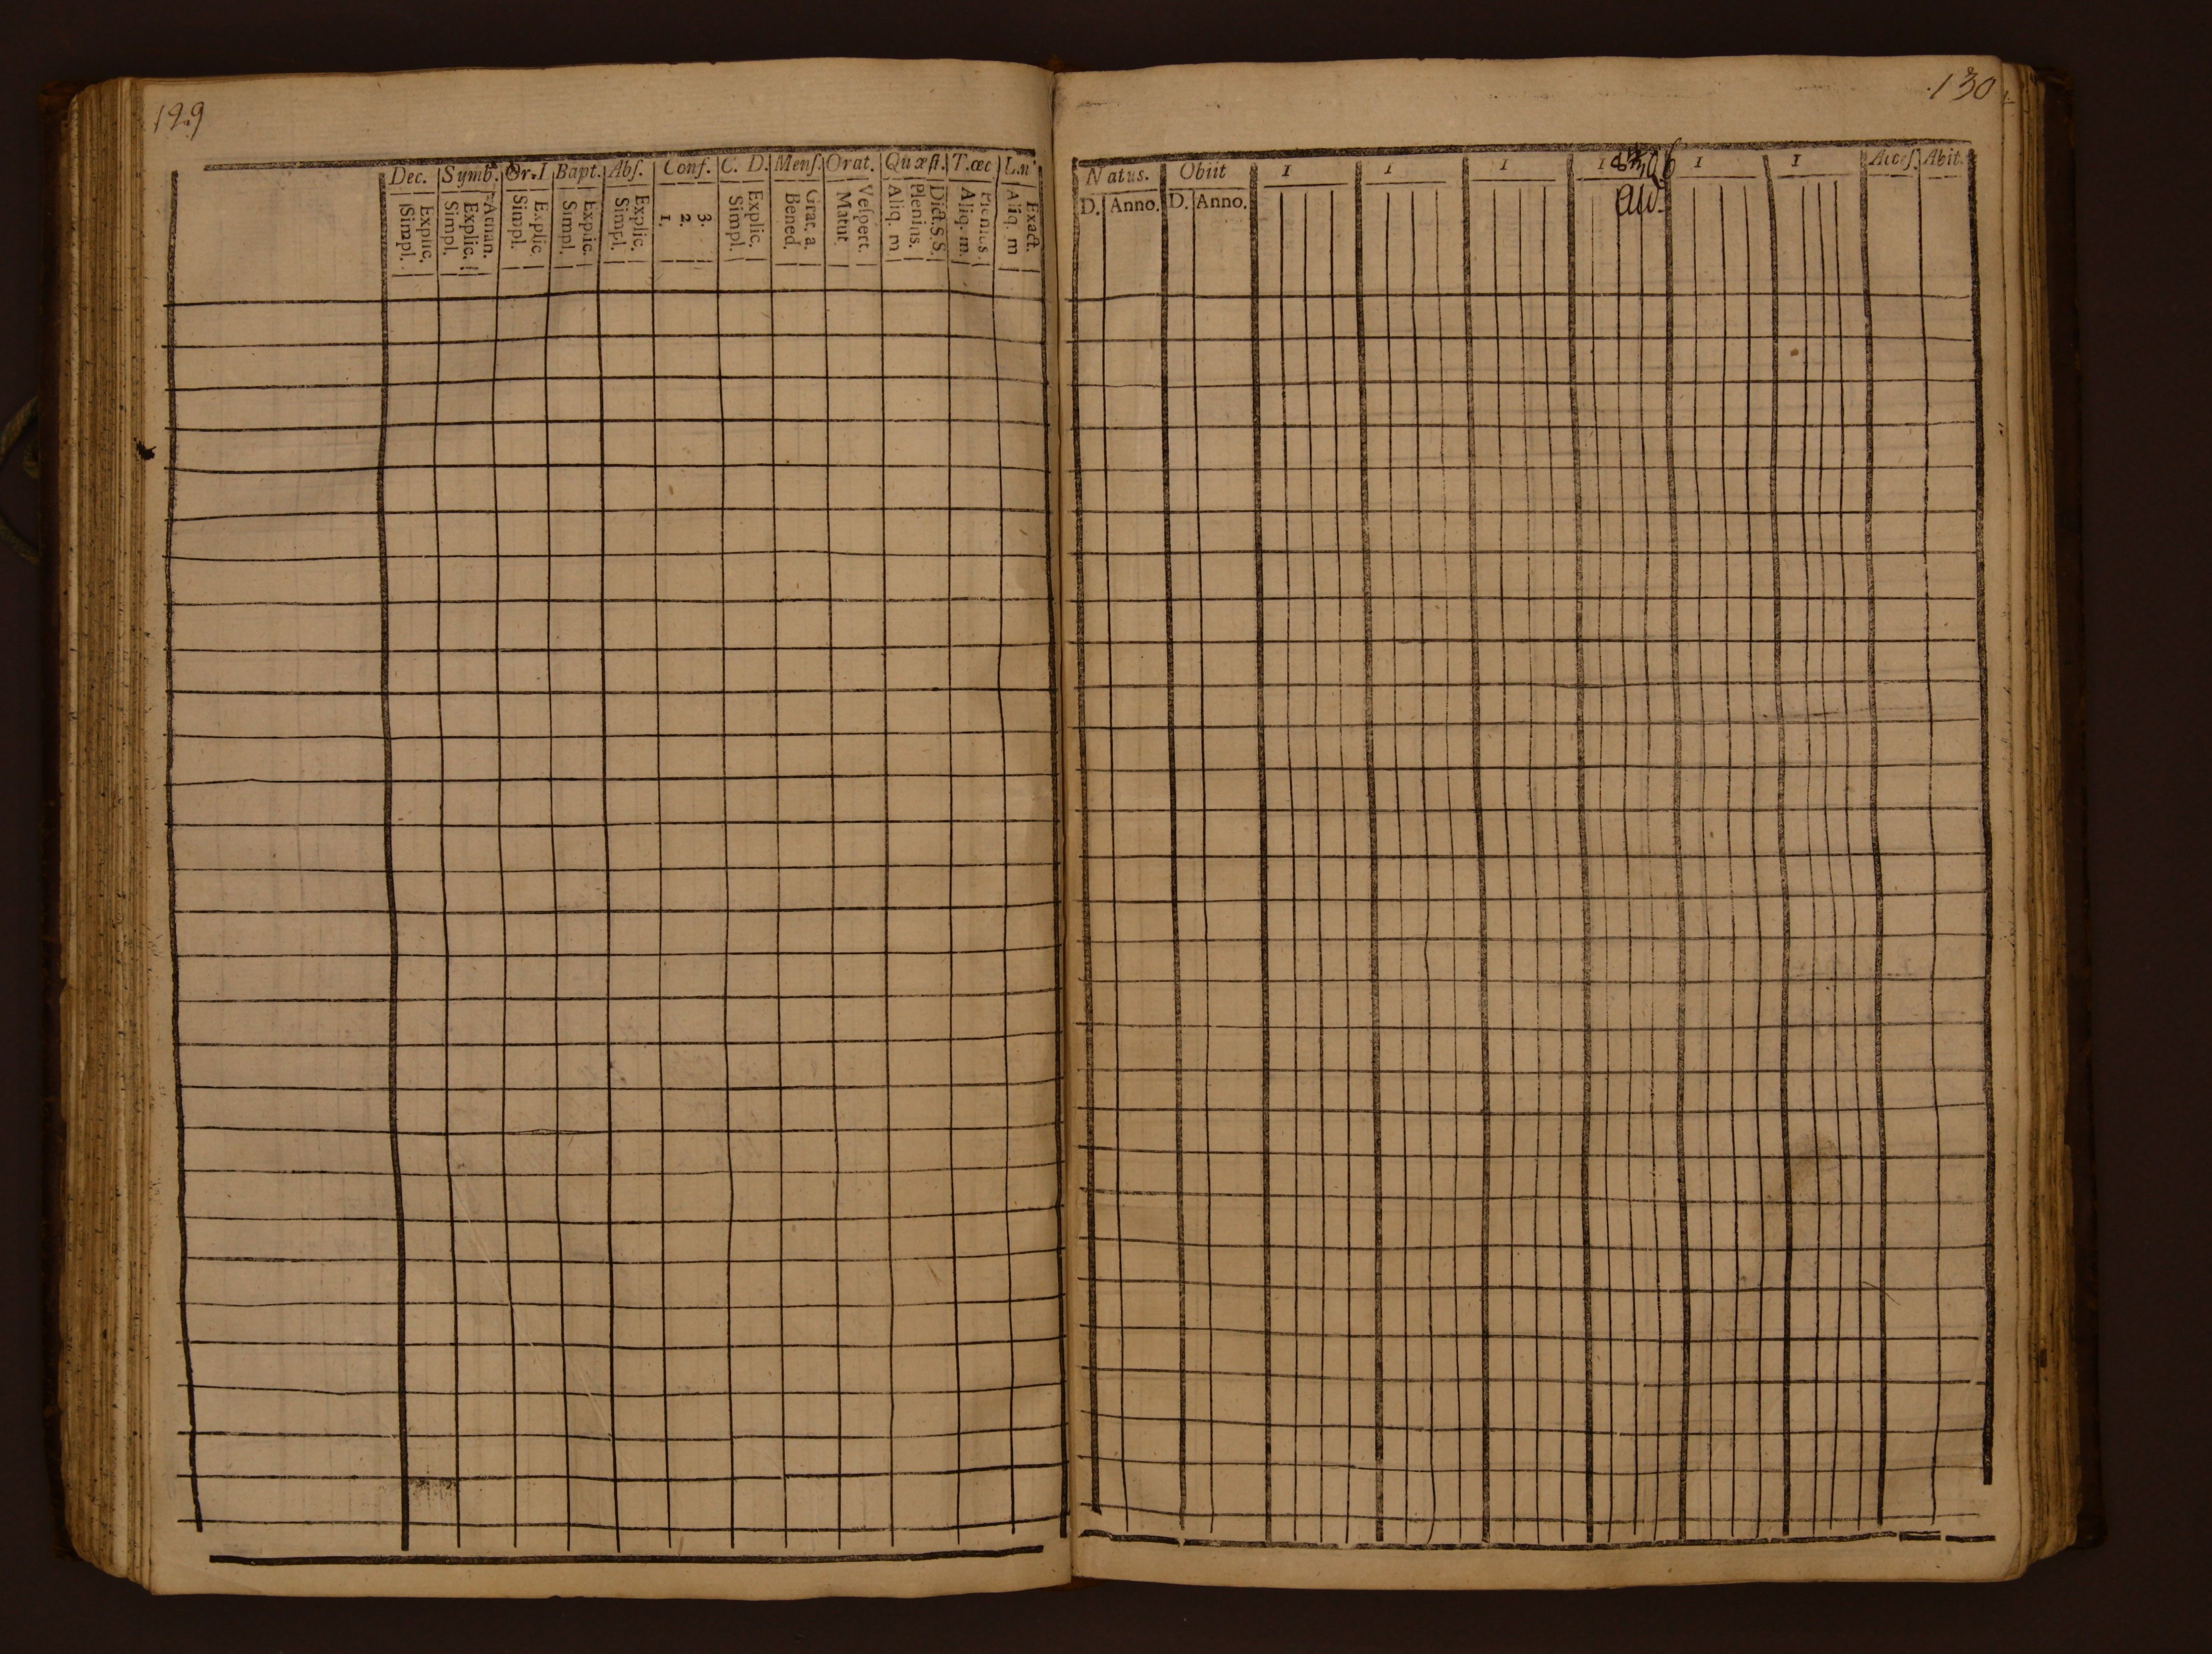 129
Dec. Symb. Or. I Bapt. Abſ. Conf. C. D. Menſ. Orat. Quæſt. T. œc L. n
Explic. Simpl.
Athan. Explic. Simpl.
Explic Simpl.
Explic. Simpl.
Explic. Simpl.
3. 2. 1.
Explic. Simpl.
Grat. a. Bened.
Veſpert. Matut.
Dict. S. S. Plenius. Aliq. m
Plenius. Aliq. m.
Exact. Aliq. m
130
Natus. Obiit I I I I I I Acceſ. Abit.
D. Anno. D. Anno.